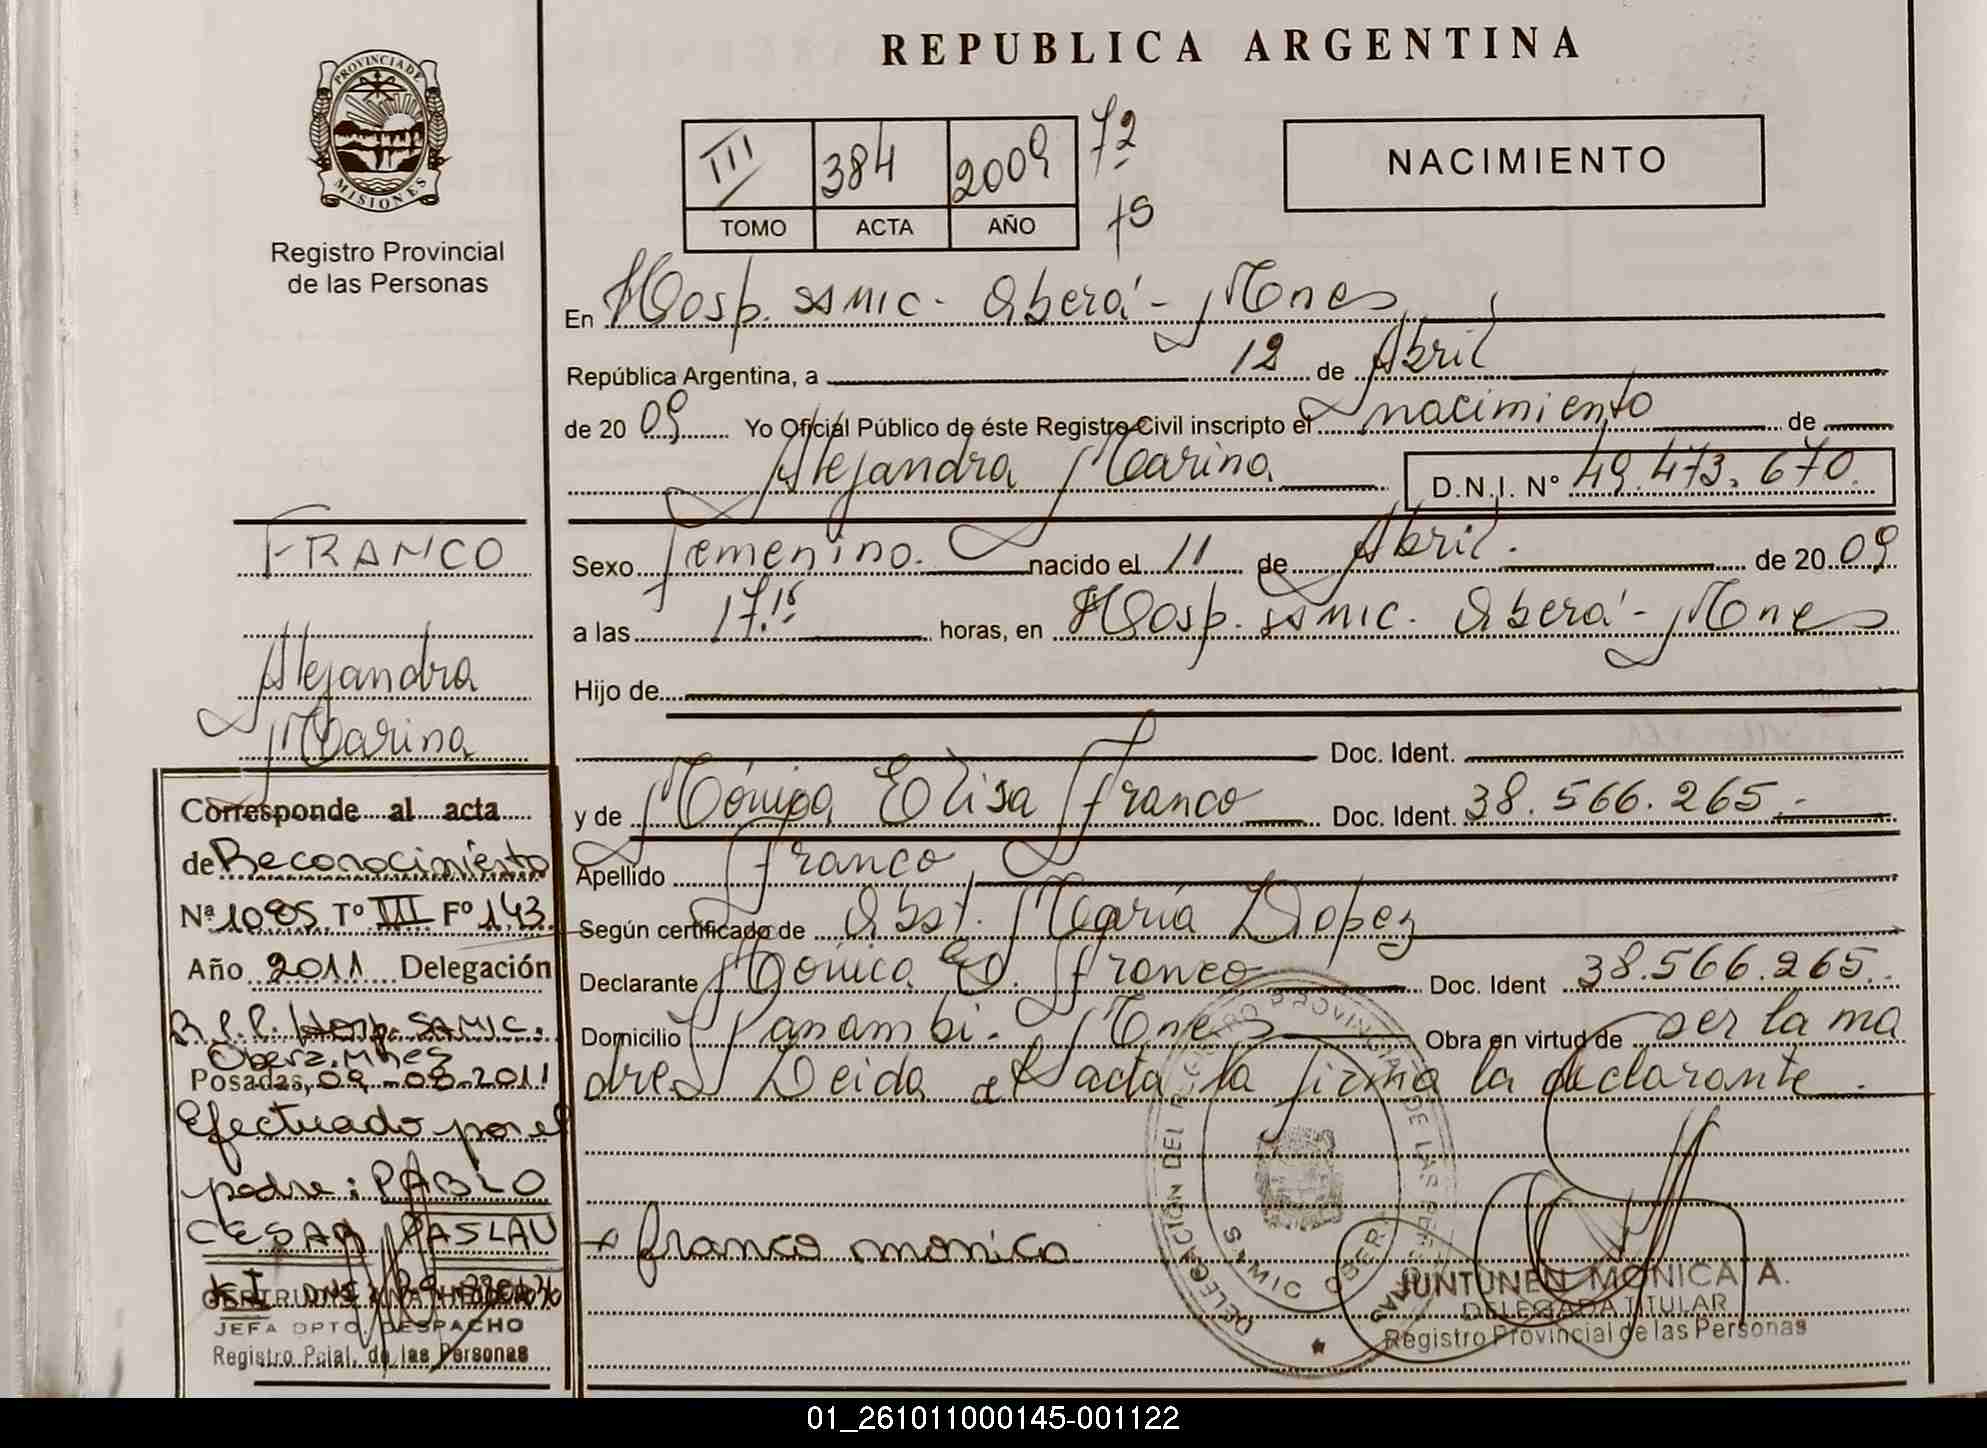 REPUBLICA ARGENTINA
PROVINCIA DE
MISIONES
Registro Provincial
de las Personas
III 384 2009 72
TOMO ACTA AÑO
NACIMIENTO
En Hosp. SAMIC - Oberá - Mnes
República Argentina, a 12 de Abril
de 2009 Yo Oficial Público de éste Registro Civil inscripto el nacimiento de
Alejandra Marina D.N.I. Nº 49.473.670
Sexo femenino. nacido el 11 de Abril. de 2009
a las 17.15 horas, en Hosp. SAMIC. Oberá - Mnes
Hijo de
Doc. Ident.
y de Mónica Elisa Franco Doc. Ident. 38.566.265.-
Apellido Franco
Según certificado de Obst. María Lopez
Declarante Mónica E. Franco Doc. Ident 38.566.265.
Domicilio Panambi - Mnes Obra en virtud de ser la ma
dre Leida el acta la firma la declarante.
franco monica
DELEGACIÓN DEL REGISTRO PROVINCIAL DE LAS PERSONAS
SAMIC OBERA
JUNTUNEN MONICA A.
DELEGADA TITULAR
Registro Provincial de las Personas
FRANCO
Alejandra
Marina
Corresponde al acta
de Reconocimiento
Nº 1085 Tº III Fº 143
Año 2011 Delegación
R.P.P. Hosp. SAMIC.
Oberá. Mnes
Posadas, 09-08-2011
Efectuado por el
padre: PABLO
CESAR PASLAU
JEFA DPTO. DESPACHO
Registro Pcial. de las Personas
01_261011000145-001122